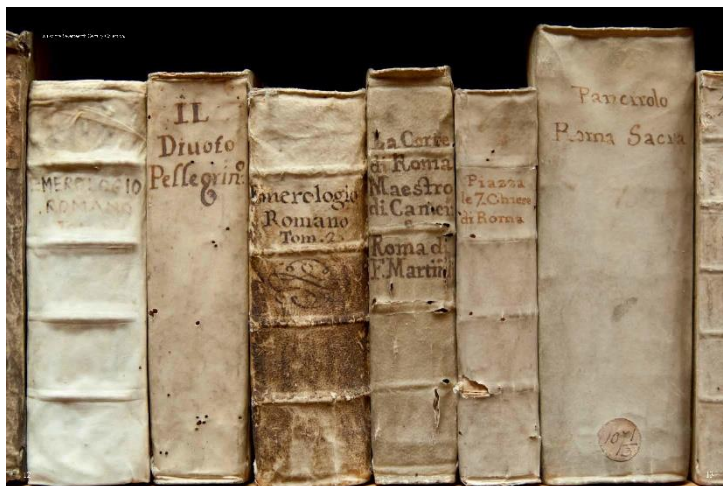 EMEROLOGIO
ROMANO
IL
Divoto
Pellegrin
Emerologio
Romano
Tom. 2
La Corte
di Roma
Maestro
di Camer
e
Roma di
F. Martin
Piazza
le 7. Chiese
di Roma
Pancirolo
Roma Sacra
1071
13